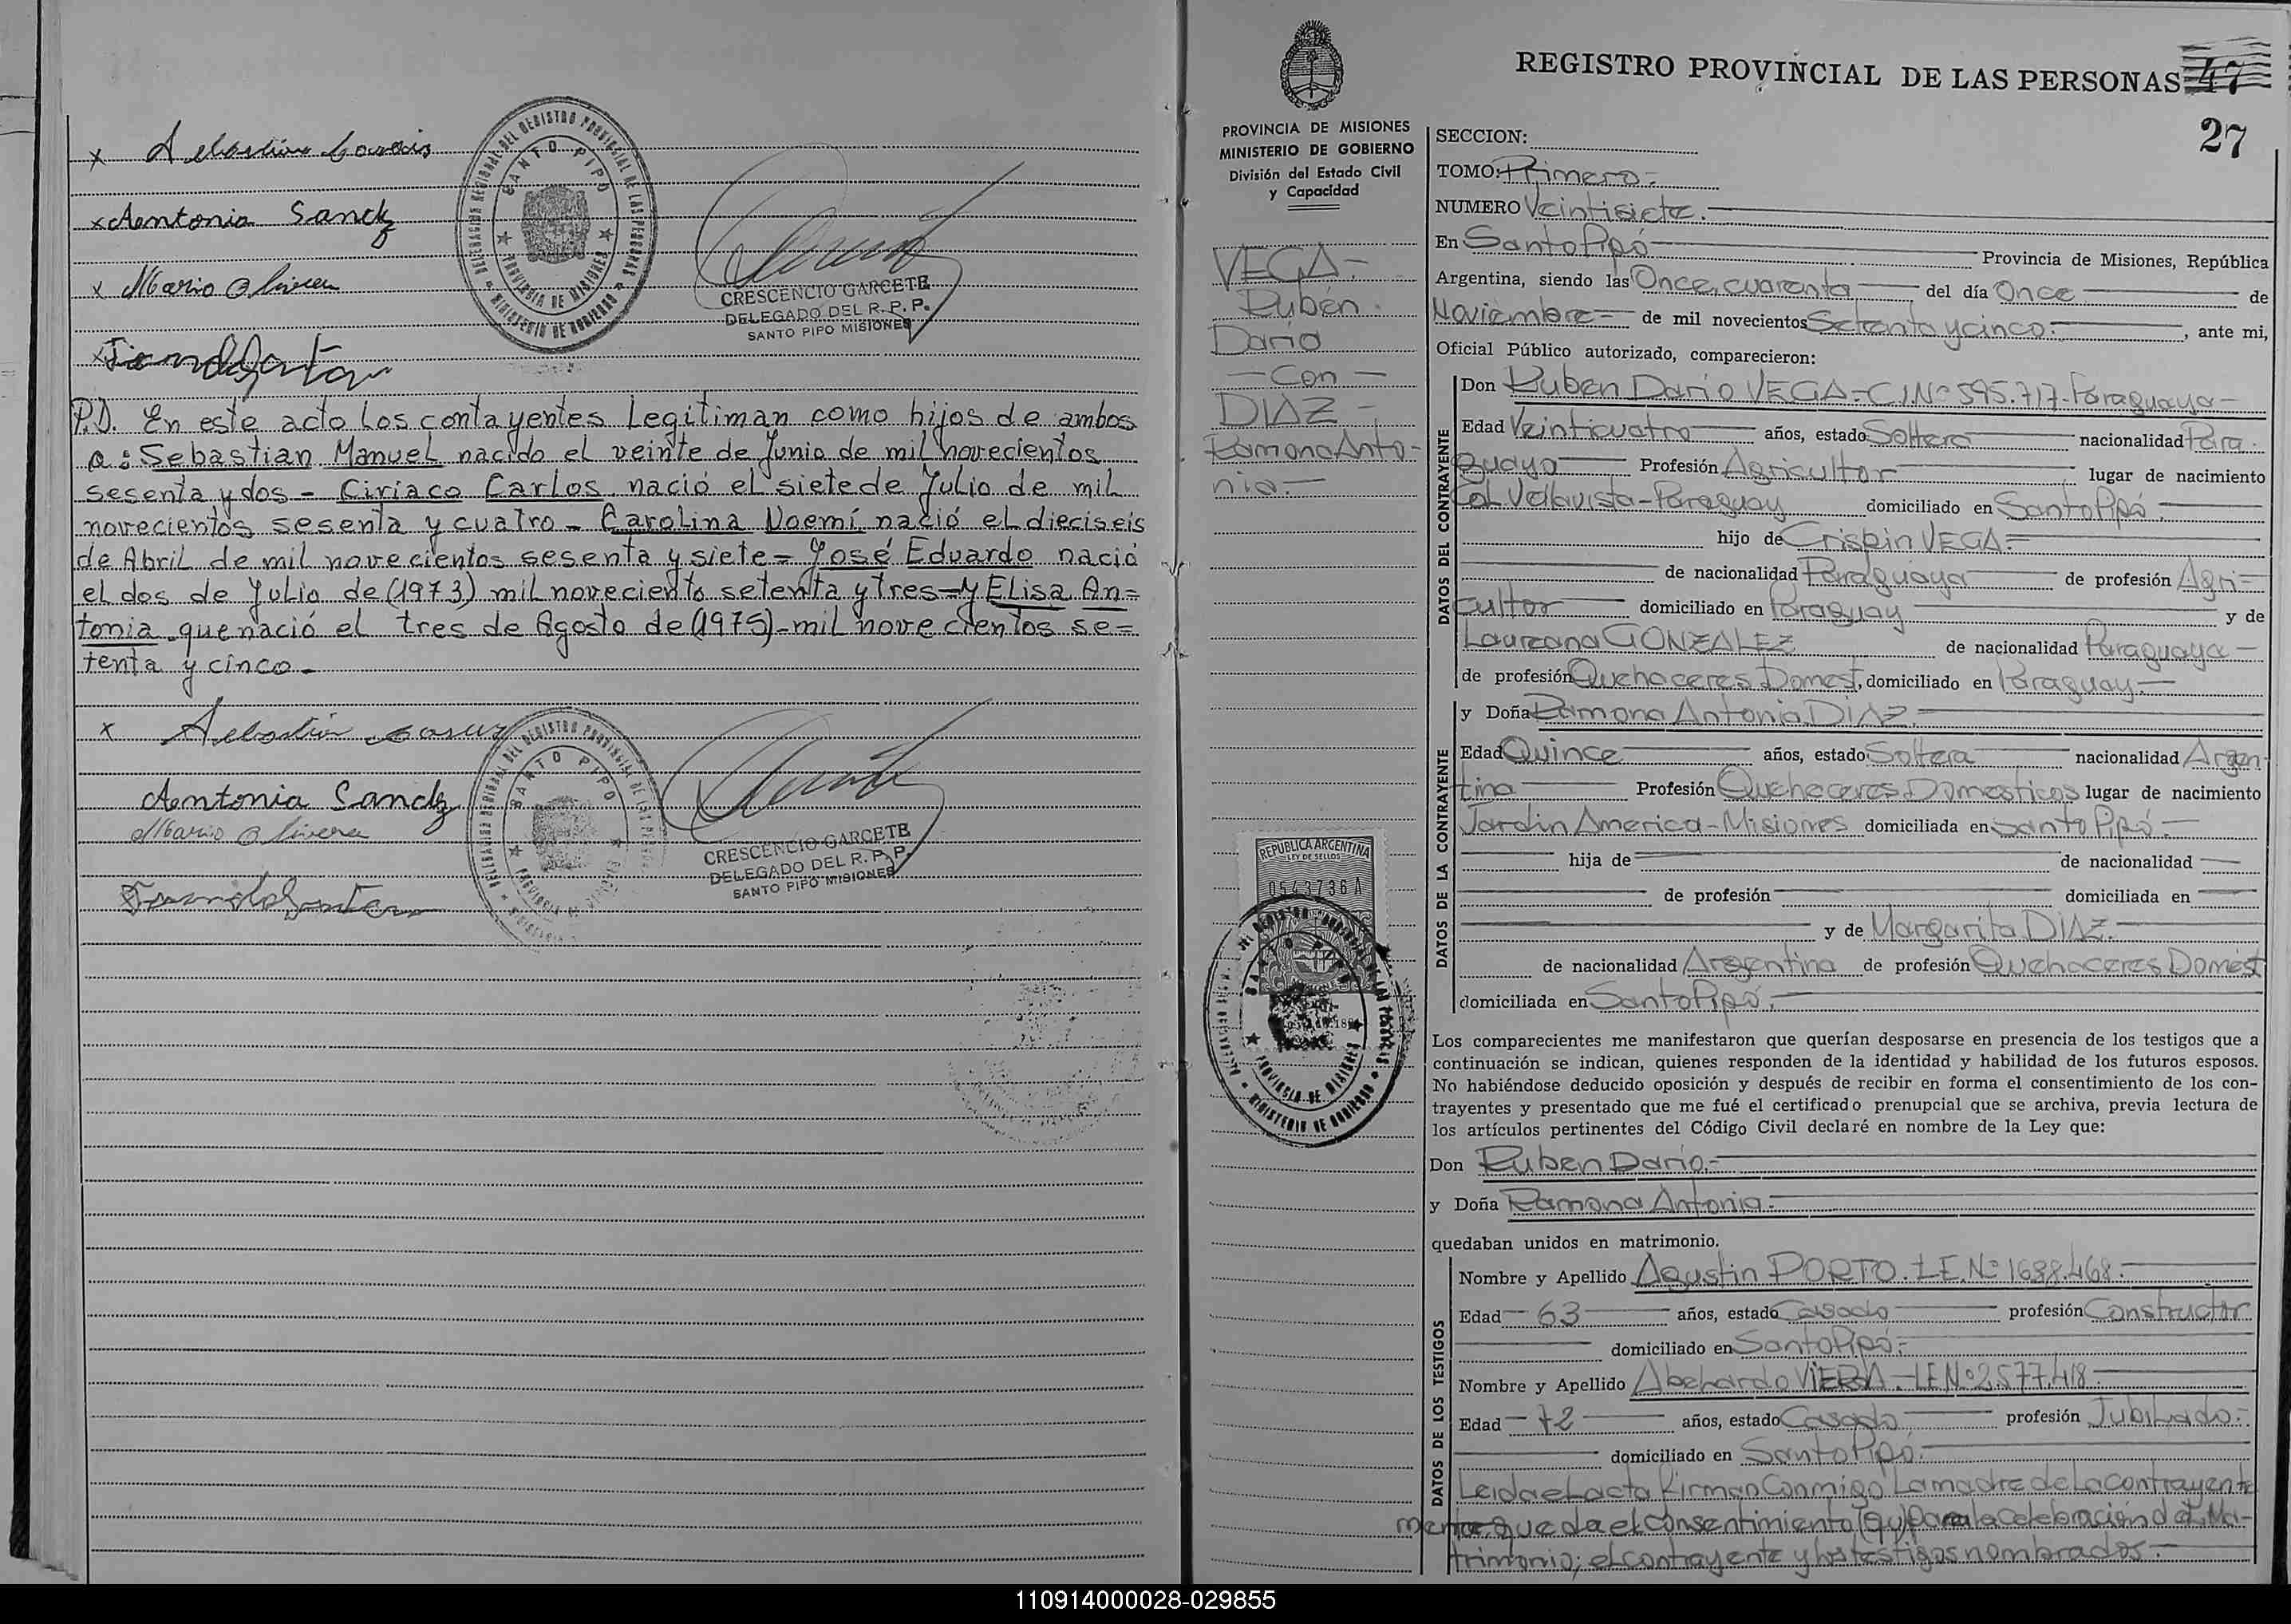 x Sebastián
x Antonia Sanchz
x Mario Olivera
DELEGACION REGIONAL DEL REGISTRO PROVINCIAL DE LAS PERSONAS
SANTO PIPO
PROVINCIA DE MISIONES
MINISTERIO DE GOBIERNO
CRESCENCIO GARCETE
DELEGADO DEL R. P. P.
SANTO PIPO MISIONES
P.D. En este acto los contayentes Legitiman como hijos de ambos
a: Sebastian Manuel nacido el veinte de Junio de mil novecientos
sesenta y dos - Ciriaco Carlos nació el siete de Julio de mil
novecientos sesenta y cuatro - Carolina Noemí nació el dieciseis
de Abril de mil novecientos sesenta y siete = José Eduardo nació
el dos de Julio de (1973) mil noveciento setenta y tres - y Elisa An=
tonia que nació el tres de Agosto de (1975) - mil novecientos se=
tenta y cinco -
x Sebastián
Antonia Sanchz
Mario Olivera
CRESCENCIO GARCETE
DELEGADO DEL R. P. P.
SANTO PIPO MISIONES
REGISTRO PROVINCIAL DE LAS PERSONAS 47
27
PROVINCIA DE MISIONES
MINISTERIO DE GOBIERNO
División del Estado Civil
y Capacidad
VEGA-
Rubén
Darío
- Con -
DIAZ -
Ramona Anto-
nia.-
REPUBLICA ARGENTINA
LEY DE SELLOS
0543736 A
SECCION:
TOMO: Primero-
NUMERO Veintisiete.
En Santo Pipó Provincia de Misiones, República
Argentina, siendo las Once, cuarenta del día Once de
Noviembre de mil novecientos Setenta y cinco.-, ante mi,
Oficial Público autorizado, comparecieron:
DATOS DEL CONTRAYENTE
Don Ruben Dario VEGA - C.I.Nº 595.717- Paraguaya-
Edad Veinticuatro años, estado Soltero nacionalidad Para-
guaya Profesión Agricultor lugar de nacimiento
Col. Vellavista - Paraguay domiciliado en Santo Pipó.
hijo de Crispin VEGA.
de nacionalidad Paraguaya de profesión Agri-
cultor domiciliado en Paraguay y de
Laureana GONZALEZ de nacionalidad Paraguaya-
de profesión Quehaceres Domest, domiciliado en Paraguay.-
DATOS DE LA CONTRAYENTE
y Doña Ramona Antonia DIAZ.
Edad Quince años, estado Soltera nacionalidad Argen-
tina Profesión Quehaceres Domesticos lugar de nacimiento
Jardin America - Misiones domiciliada en Santo Pipó.-
hija de de nacionalidad
de profesión domiciliada en
y de Margarita DIAZ.-
de nacionalidad Argentina de profesión Quehaceres Domést
domiciliada en Santo Pipó.-
Los comparecientes me manifestaron que querían desposarse en presencia de los testigos que a
continuación se indican, quienes responden de la identidad y habilidad de los futuros esposos.
No habiéndose deducido oposición y después de recibir en forma el consentimiento de los con-
trayentes y presentado que me fué el certificado prenupcial que se archiva, previa lectura de
los artículos pertinentes del Código Civil declaré en nombre de la Ley que:
Don Ruben Dario.-
y Doña Ramona Antonia.-
quedaban unidos en matrimonio.
DATOS DE LOS TESTIGOS
Nombre y Apellido Agustin PORTO. L.E.Nº 1688.468.-
Edad - 63 - años, estado Casado profesión Constructor
domiciliado en Santo Pipó.-
Nombre y Apellido Abelardo VIERA - LE Nº 2.577.418.
Edad - 72 - años, estado Casado profesión Jubilado.-
domiciliado en Santo Pipó.
Leida el acta firman Conmigo La madre de La contrayente
menor que da el consentimiento para la celebración del Ma-
trimonio; el contrayente y los testigos nombrados.-
110914000028-029855